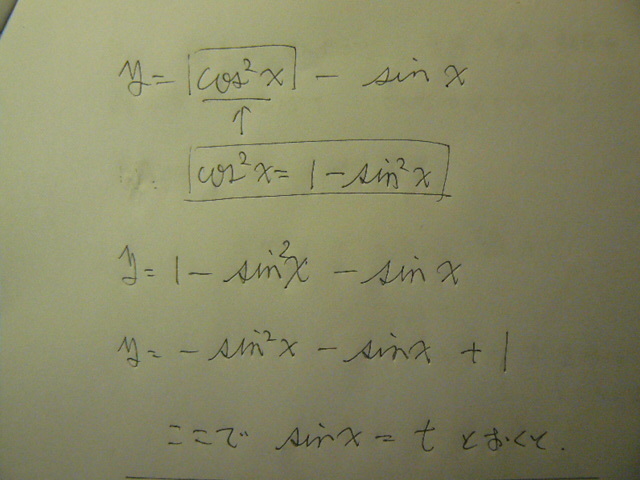 y = cos²x - sin x
↑
cos²x = 1 - sin²x
y = 1 - sin²x - sin x
y = - sin²x - sin x + 1
ここで sin x = t とおくと.